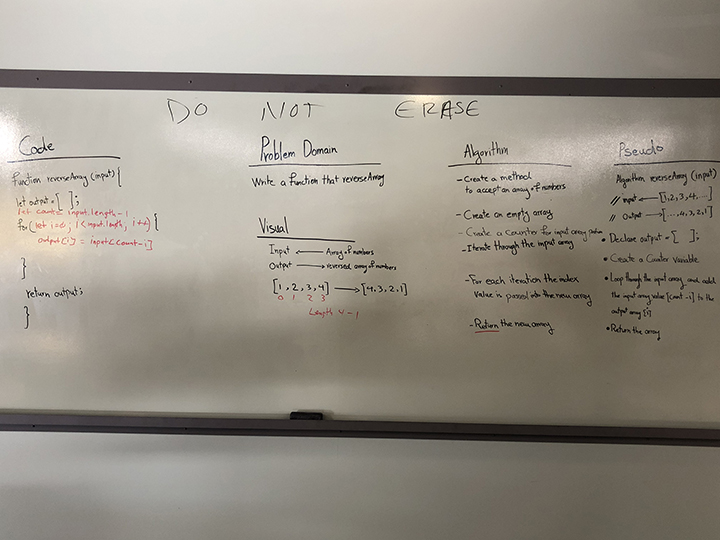 DO NOT ERASE
Code
function reverseArray (input) {
let output = [ ];
let count = input.length - 1
for (let i=0; i < input.length; i++) {
output[i] = input[count-i]
}
return output;
}
Problem Domain
Write a function that reverseArray
Visual
Input ← Array of numbers
Output → reversed array of numbers
[1, 2, 3, 4] → [4, 3, 2, 1]
0 1 2 3
Length 4 - 1
Algorithm
- Create a method
to accept an array of numbers
- Create an empty array
- Create a Counter for input array
- Iterate through the input array
- For each iteration the index
value is passed into the new array
- Return the new array
Pseudo
Algorithm reverseArray (input)
// input ← [1, 2, 3, 4, ...]
// Output → [..., 4, 3, 2, 1]
• Declare output = [ ];
• Create a Counter Variable
• Loop through the input array, and add
the input array value [count - i] to the
output array [i]
• Return the array